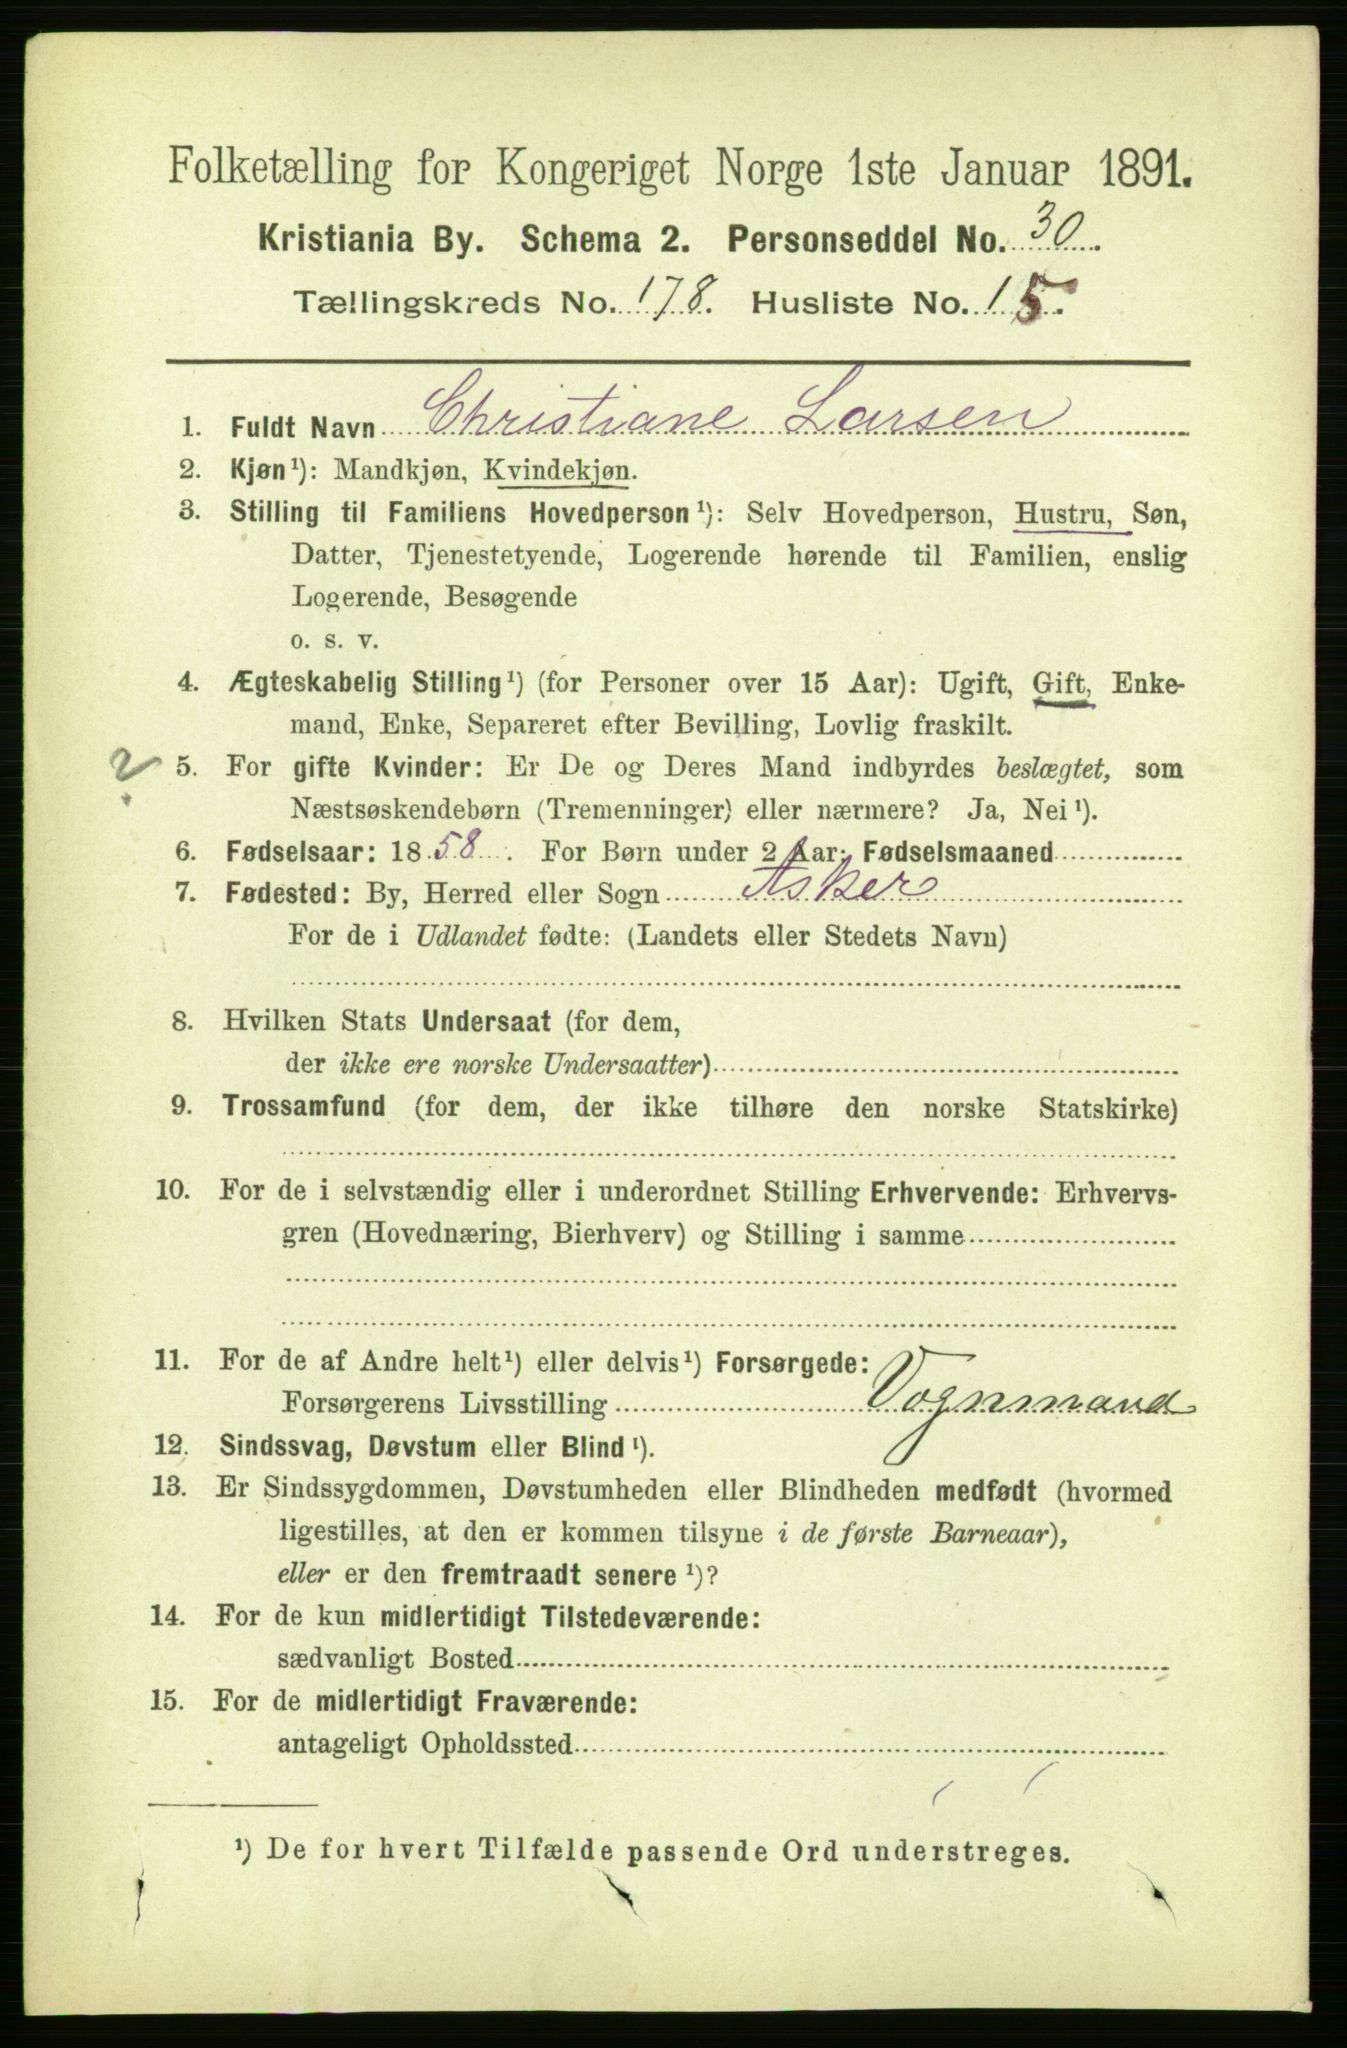 Folketælling for Kongeriget Norge 1ste Januar 1891.
Kristiania By. Schema 2. Personseddel No. 30.
Tællingskreds No. 178. Husliste No. 15.
1. Fuldt Navn Christiane Larsen
2. Kjøn¹): Mandkjøn, Kvindekjøn.
3. Stilling til Familiens Hovedperson¹): Selv Hovedperson, Hustru, Søn,
Datter, Tjenestetyende, Logerende hørende til Familien, enslig
Logerende, Besøgende
o. s. v.
4. Ægteskabelig Stilling¹) (for Personer over 15 Aar): Ugift, Gift, Enke-
mand, Enke, Separeret efter Bevilling, Lovlig fraskilt.
? 5. For gifte Kvinder: Er De og Deres Mand indbyrdes beslægtet, som
Næstsøskendebørn (Tremenninger) eller nærmere? Ja, Nei¹).
6. Fødselsaar: 1858. For Børn under 2 Aar: Fødselsmaaned
7. Fødested: By, Herred eller Sogn Asker
For de i Udlandet fødte: (Landets eller Stedets Navn)
8. Hvilken Stats Undersaat (for dem,
der ikke ere norske Undersaatter)
9. Trossamfund (for dem, der ikke tilhøre den norske Statskirke)
10. For de i selvstændig eller i underordnet Stilling Erhvervende: Erhvervs-
gren (Hovednæring, Bierhverv) og Stilling i samme
11. For de af Andre helt¹) eller delvis¹) Forsørgede:
Forsørgerens Livsstilling Vognmand
12. Sindssvag, Døvstum eller Blind¹).
13. Er Sindssygdommen, Døvstumheden eller Blindheden medfødt (hvormed
ligestilles, at den er kommen tilsyne i de første Barneaar),
eller er den fremtraadt senere¹)?
14. For de kun midlertidigt Tilstedeværende:
sædvanligt Bosted
15. For de midlertidigt Fraværende:
antageligt Opholdssted
¹) De for hvert Tilfælde passende Ord understreges.